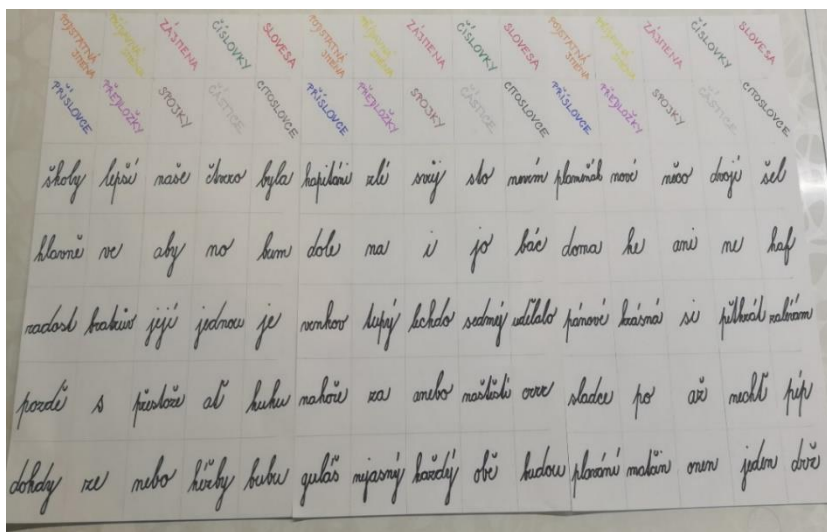 PODSTATNÁ JMÉNA PŘÍDAVNÁ JMÉNA ZÁJMENA ČÍSLOVKY SLOVESA PODSTATNÁ JMÉNA PŘÍDAVNÁ JMÉNA ZÁJMENA ČÍSLOVKY SLOVESA PODSTATNÁ JMÉNA PŘÍDAVNÁ JMÉNA ZÁJMENA ČÍSLOVKY SLOVESA
PŘÍSLOVCE PŘEDLOŽKY SPOJKY ČÁSTICE CITOSLOVCE PŘÍSLOVCE PŘEDLOŽKY SPOJKY ČÁSTICE CITOSLOVCE PŘÍSLOVCE PŘEDLOŽKY SPOJKY ČÁSTICE CITOSLOVCE
školy lepší naše čtvero byla kapitáni zlé svůj sto nevím plameňák nové něco dvojí šel
hlavně ve aby no bum dole na i jo bác doma ke ani ne haf
radost bratrův její jednou je venkov tupý leckdo sedmý udělalo pánové krásná si pětkrát zalévám
pozdě s přestože ať kuku nahoře za anebo naštěstí sladce po až nechť píp
dokdy ze nebo kéžby bubu guláš nejasný každý obě budou plavání matčin onen jeden